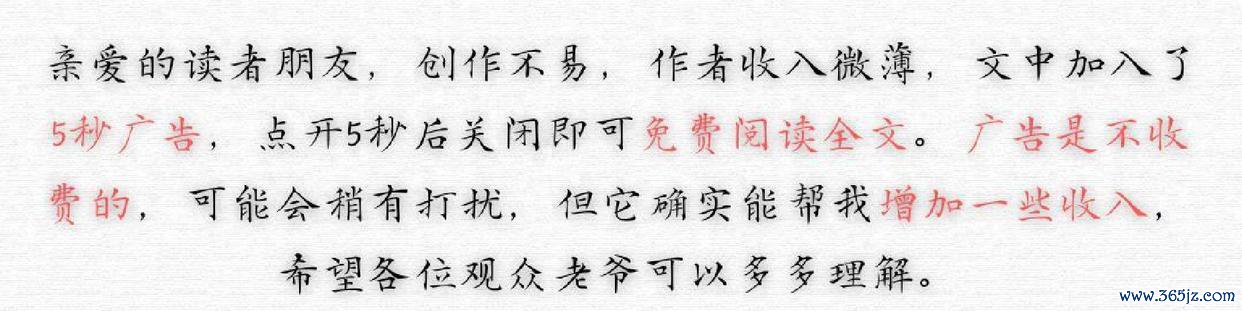 亲爱的读者朋友，创作不易，作者收入微薄，文中加入了
5秒广告，点开5秒后关闭即可免费阅读全文。广告是不收
费的，可能会稍有打扰，但它确实能帮我增加一些收入，
希望各位观众老爷可以多多理解。
www.365jz.com